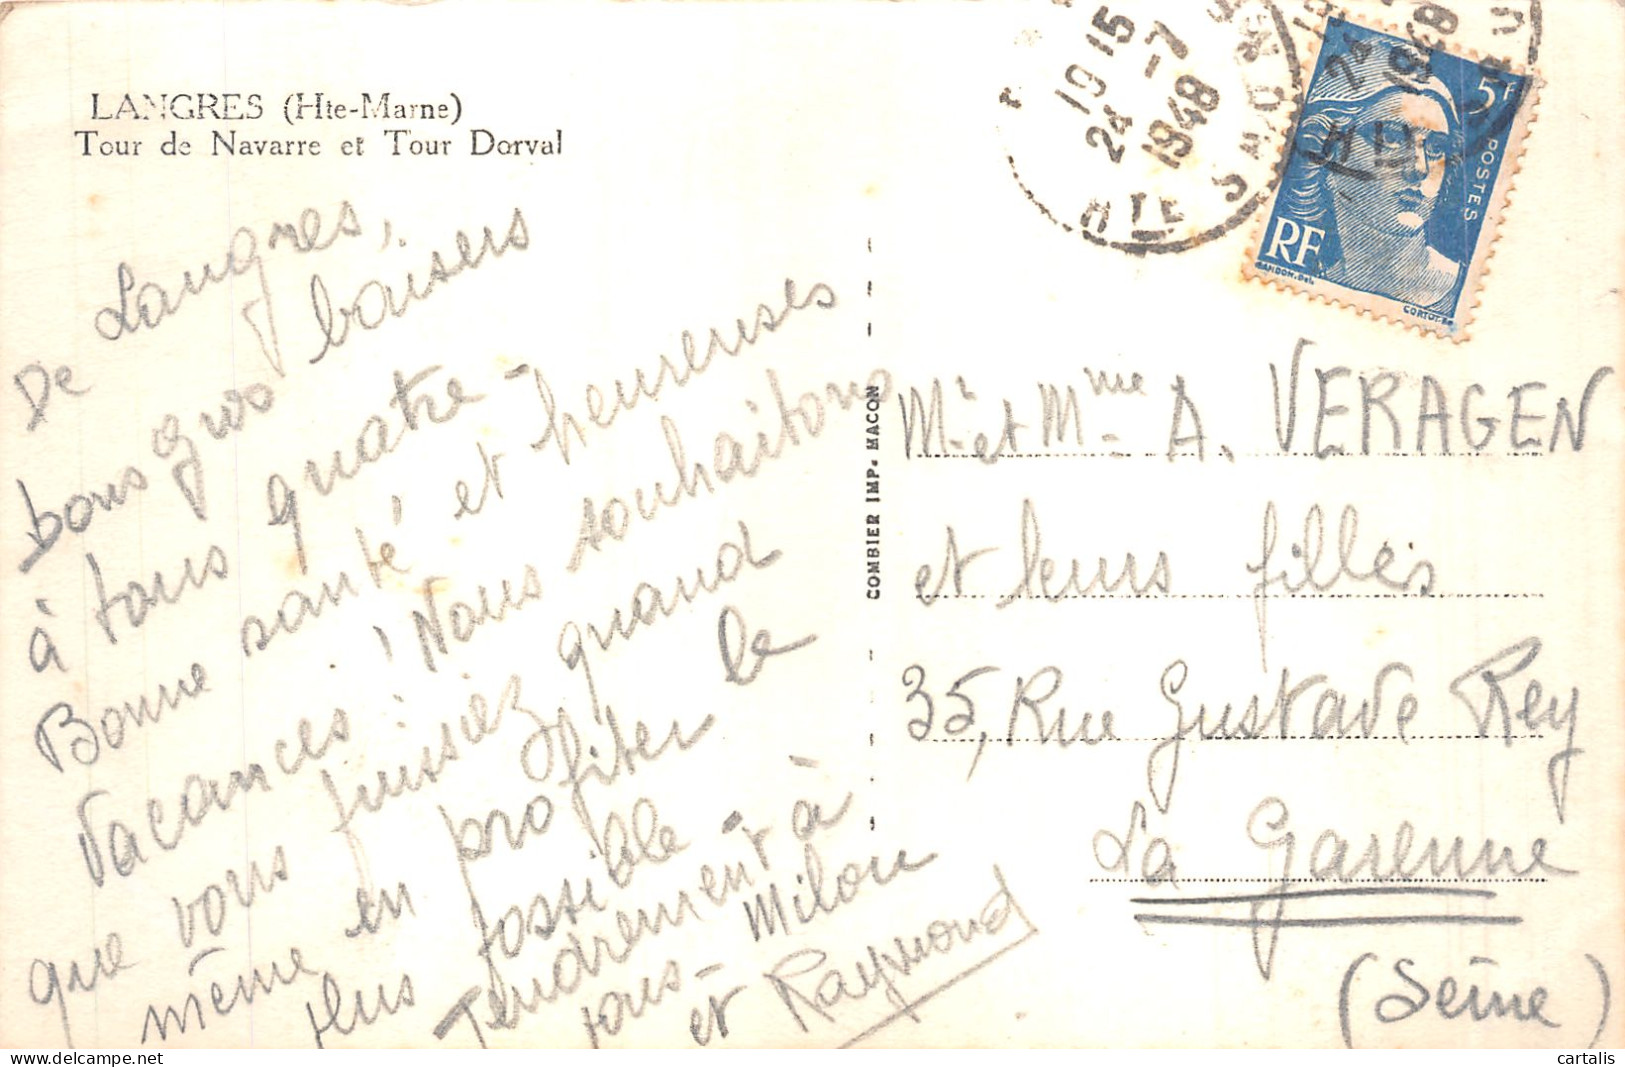 LANGRES (Hte-Marne)
Tour de Navarre et Tour Dorval
De Langres,
bons gros baisers
à tous quatre -
Bonne santé et heureuses
vacances ! Nous souhaitons
que vous puissiez quand
même en profiter le
plus possible -
Tendrement à
tous - Milou
et Raymond
COMBIER IMP. MACON
19 15
24 -7
1948
HTE SAONE
24
1948
5F
POSTES
RF
GANDON. Del.
CORTOT. Sc
Mr et Mme A. VERAGEN
et leurs filles
35, Rue Gustave Rey
La Garenne
(Seine)
cartalis